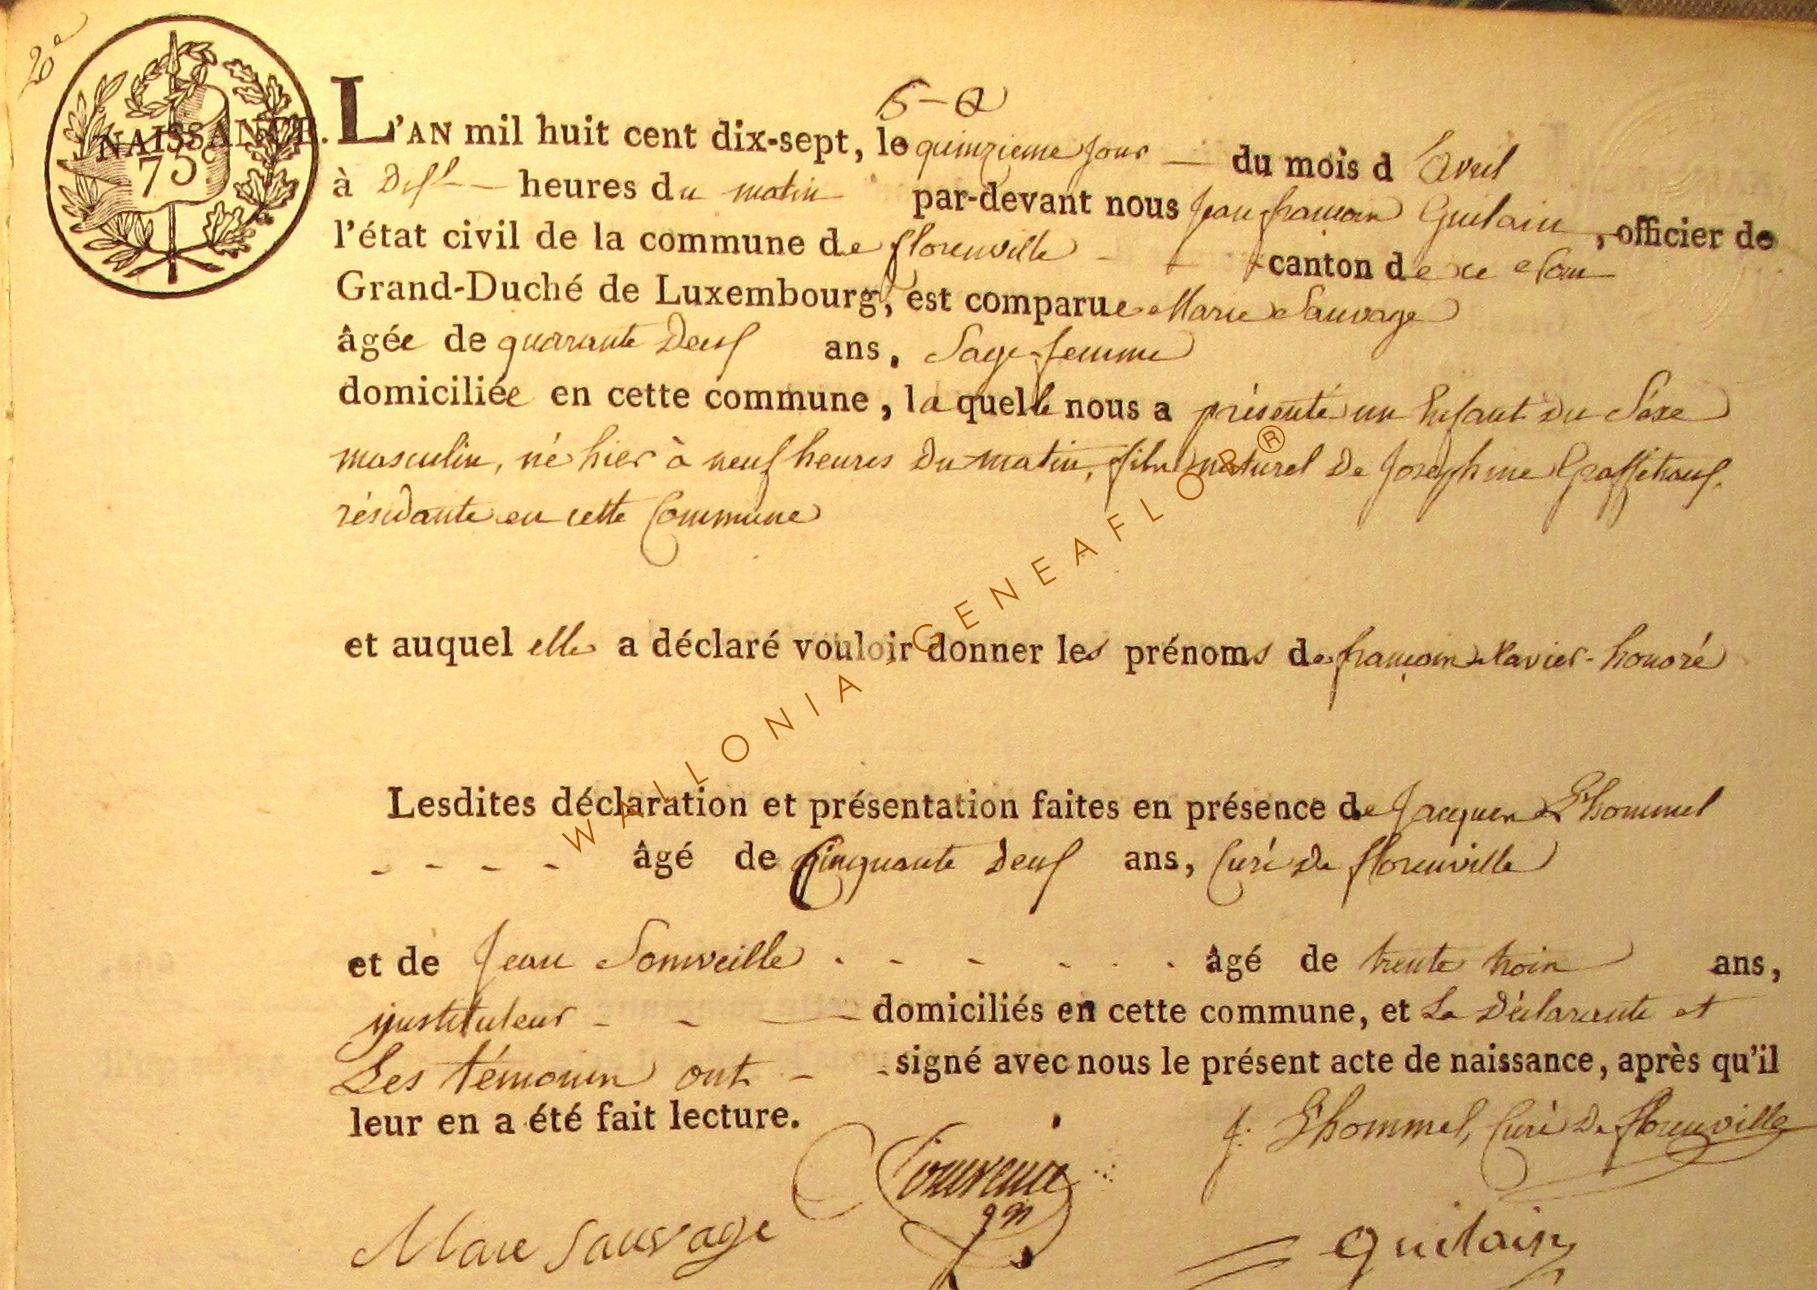 2e
NAISSANCE.
75c
5-a
L'AN mil huit cent dix-sept, le quinzieme jour du mois d'avril
à Dix h heures du matin par-devant nous Jean françois Guilain, officier de
l'état civil de la commune de florenville canton de
Grand-Duché de Luxembourg, est comparue Marie Sauvage
âgée de quarante Deux ans, Sage-femme
domiciliée en cette commune, laquelle nous a présenté un Enfant du Séxe
masculin, né hier à neuf heures Du matin, fils naturel De Joséphine
résidante en cette Commune
et auquel elle a déclaré vouloir donner les prénoms de françois Xavier-honoré
Lesdites déclaration et présentation faites en présence de Jacques L'hommel
âgé de Cinquante Deux ans, Curé De florenville
et de Jean Somveille âgé de trente trois ans,
instituteur domiciliés en cette commune, et La Déclarante et
Les témoins ont signé avec nous le présent acte de naissance, après qu'il
leur en a été fait lecture.
J. L'hommel, Curé De florenville
Marie Sauvage
Guilain
WALLONIA GENEAFLOR®